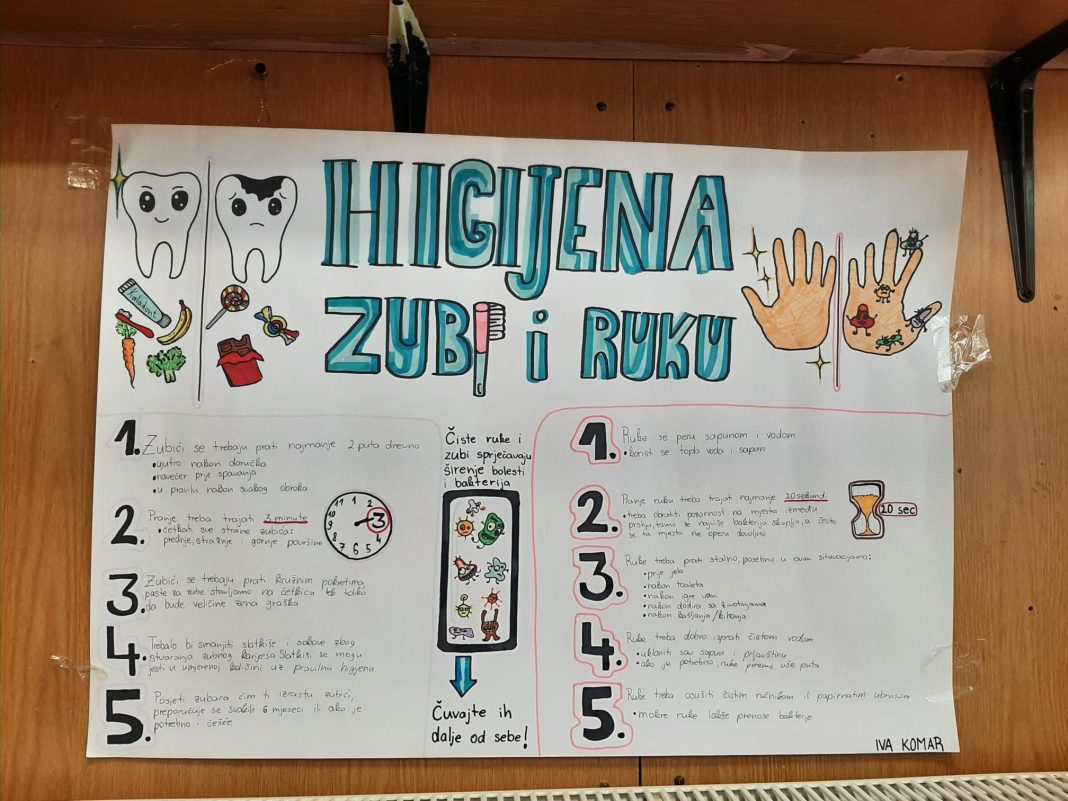 HIGIJENA
ZUBI i RUKU
Kalodont
1. Zubići se trebaju prati najmanje 2 puta dnevno
• ujutro nakon doručka
• navečer prije spavanja
• u pravilu nakon svakog obroka
2. Pranje treba trajati 3 minute
• četkati sve strane zubića:
prednje, stražnje i gornje površine
11 12 1 2 3 4 5 6 7 8 9 10
3. Zubići se trebaju prati kružnim pokretima,
paste za zube stavljamo na četkicu tek toliko
da bude veličine zrna graška
4. Trebalo bi smanjiti slatkiše i sokove zbog
stvaranja zubnog karijesa. Slatkiši se mogu
jesti u umjerenoj količini uz pravilnu higijenu
5. Posjeti zubara čim ti izrastu zubići,
preporučuje se svakih 6 mjeseci ili ako je
potrebno i češće
Čiste ruke i
zubi sprječavaju
širenje bolesti
i bakterija
Čuvajte ih
dalje od sebe!
1. Ruke se peru sapunom i vodom
• koristi se topla voda i sapun
2. Pranje ruku treba trajati najmanje 20 sekundi
• treba obratiti pozornost na mjesta između
prstiju, tamo se najviše bakterija skuplja, a često
se ta mjesta ne operu dovoljno
20 sec
3. Ruke treba prati stalno, posebno u ovim situacijama:
• prije jela
• nakon toaleta
• nakon igre vani
• nakon dodira sa životinjama
• nakon kašljanja/kihanja
4. Ruke treba dobro isprati čistom vodom
• ukloniti sav sapun i prljavštinu
• ako je potrebno, ruke peremo više puta
5. Ruke treba osušiti čistim ručnikom ili papirnatim ubrusom
• mokre ruke lakše prenose bakterije
IVA KOMAR